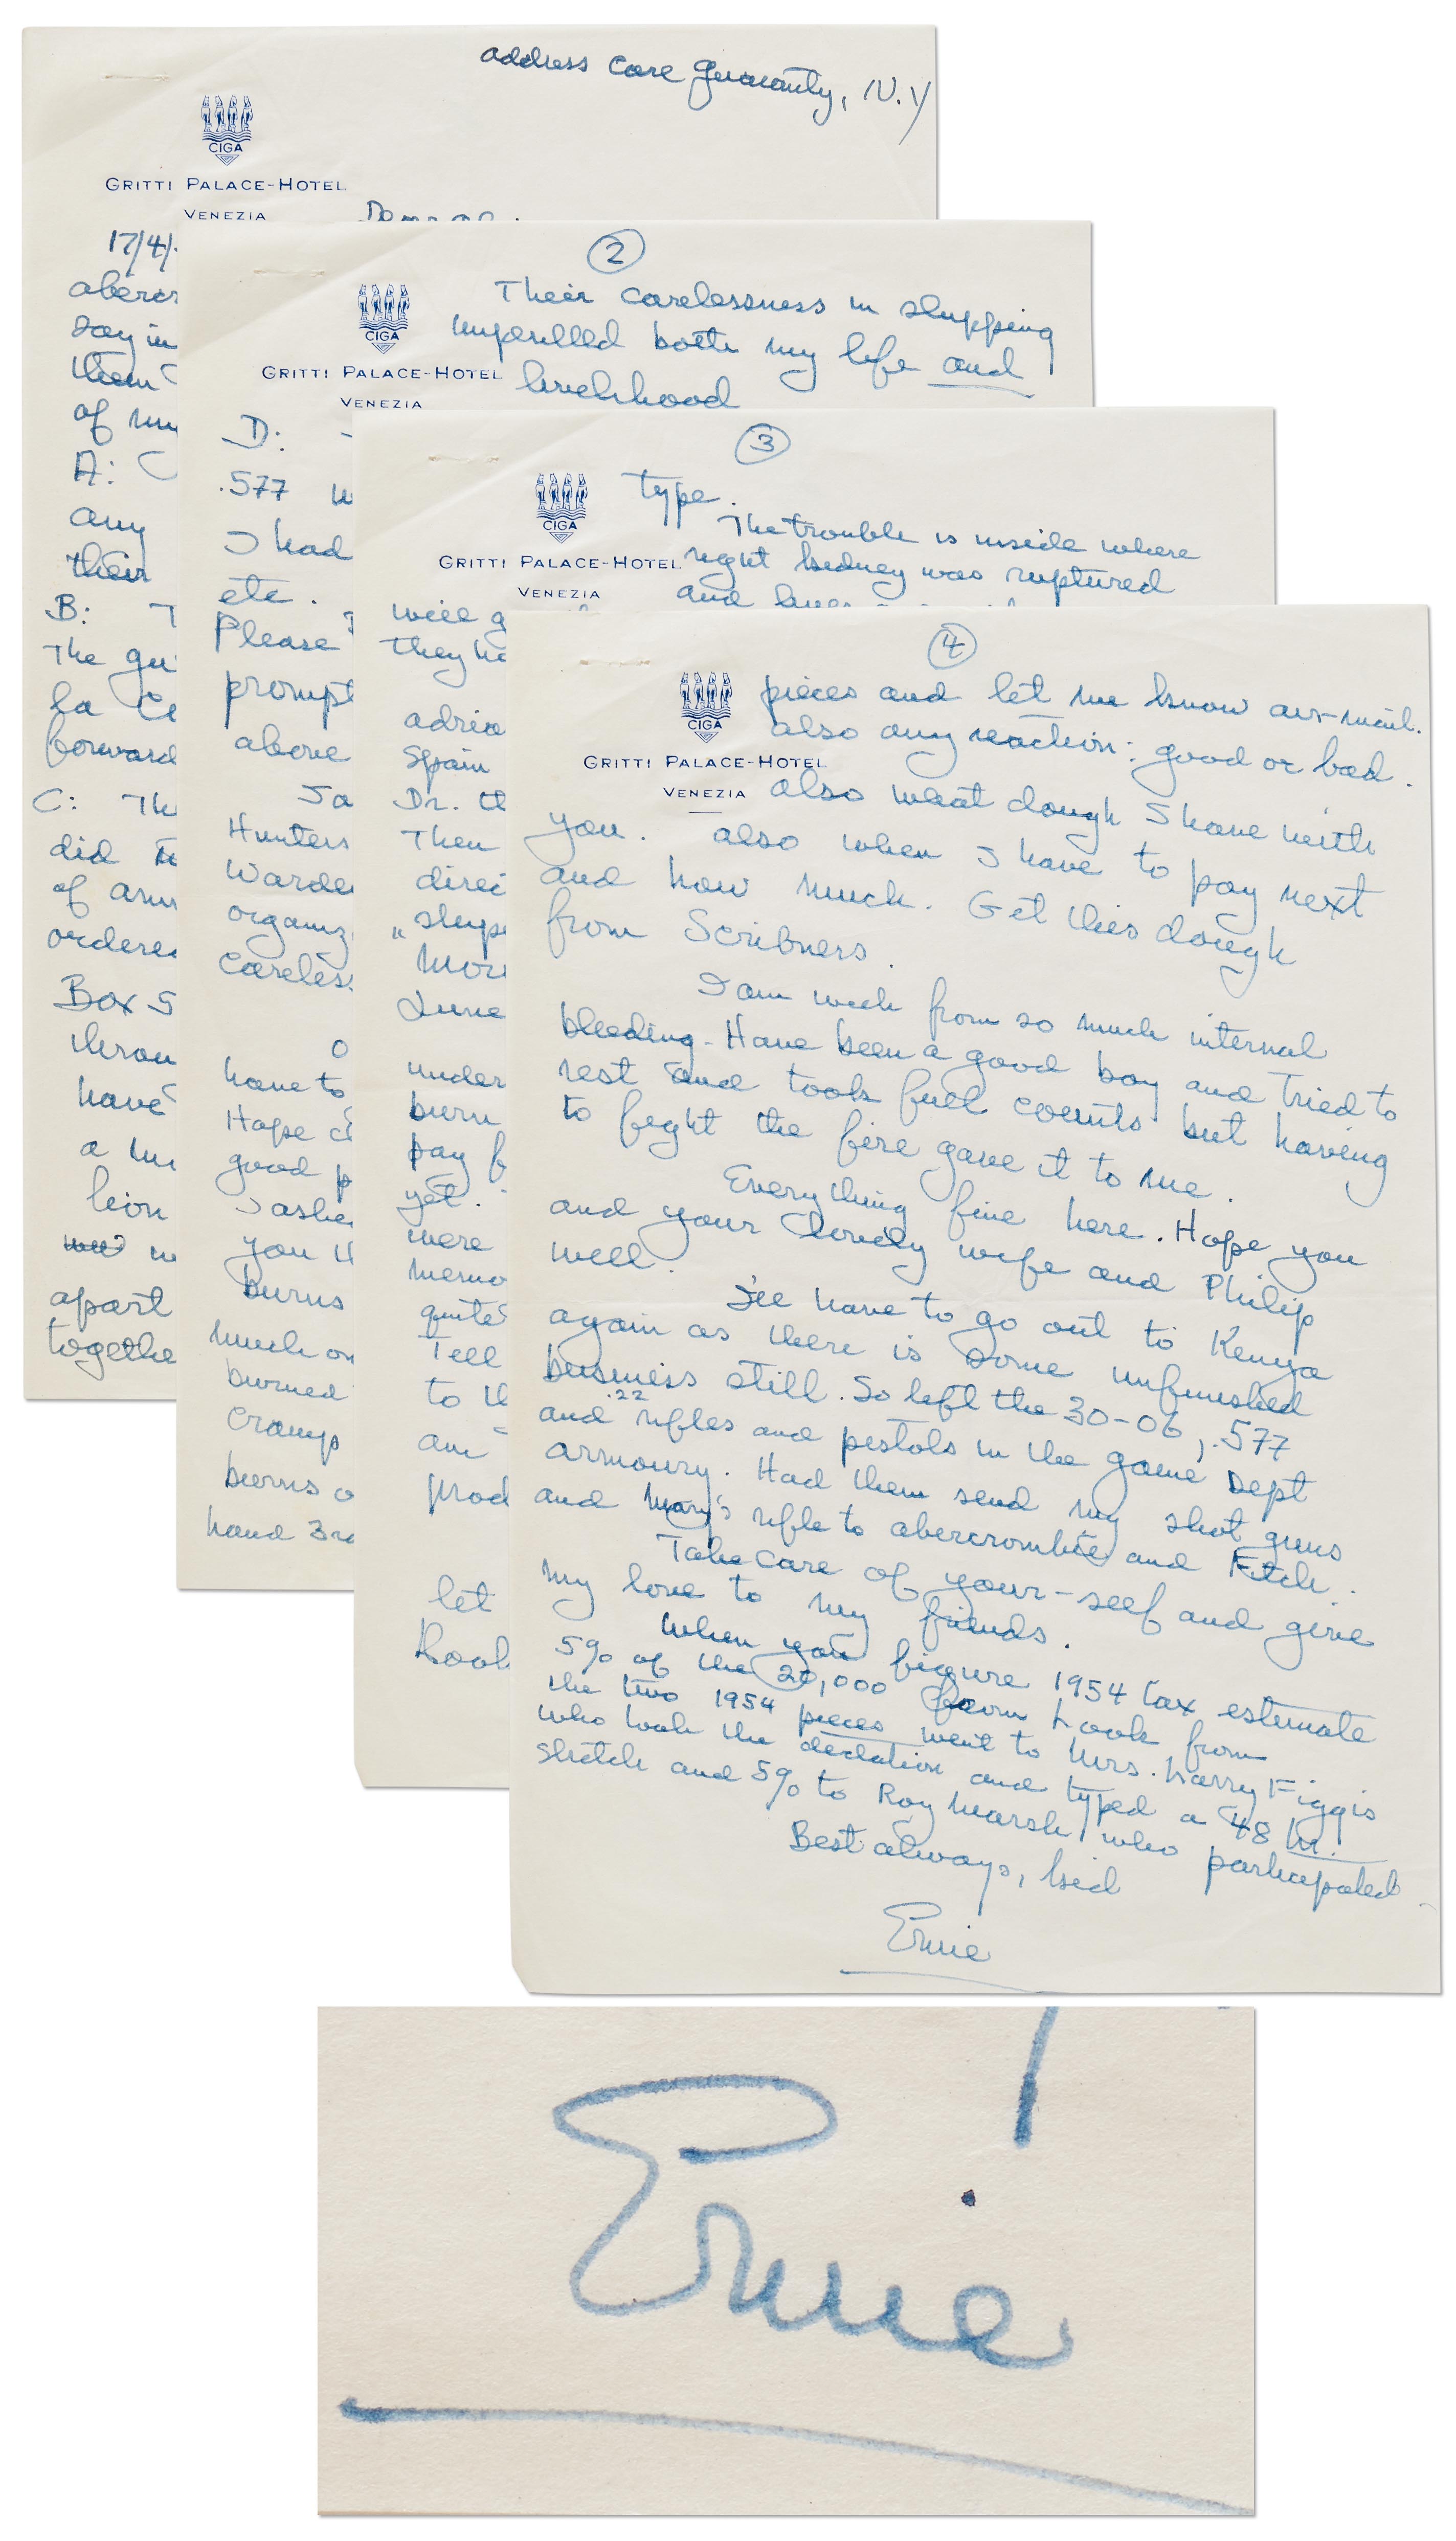 address care guaranty, N.Y
CIGA
GRITTI PALACE-HOTEL
VENEZIA
17/4/
abercr
say in
them
of my
A:
any
their
B: T
The gu
la Ce
forward
C: Th
did
of arm
ordered
Box 5
throu
have
a
lion
apart
togethe
2
Their carelessness in shipping
imperilled both my life and
livelihood
CIGA
GRITTI PALACE-HOTEL
VENEZIA
D:
.577 w
I had
etc.
Please
prompt
above
Sa
Hunters
Warde
organiz
careles
O
have to
Hope
good p
I aske
you
Burns
much on
burned
cramps
burns o
hand 3r
3
type.
The trouble is inside where
right kidney was ruptured
and liver
CIGA
GRITTI PALACE-HOTEL
VENEZIA
will g
they ha
adria
Spain
Dr. th
Then
direc
"ships
More
June
under
burn
pay f
yet.
were
memo
quite
Tell
to th
am
prod
let
Look
4
pieces and let me know air-mail.
also any reaction: good or bad.
CIGA
GRITTI PALACE-HOTEL
VENEZIA
also what dough I have with
you. also when I have to pay next
and how much. Get this dough
from Scribners.
I am weak from so much internal
bleeding - Have been a good boy and tried to
rest and took full counts but having
to fight the fire gave it to me.
Everything fine here. Hope you
and your lovely wife and Philip
well.
I'll have to go out to Kenya
again as there is some unfinished
business still. So left the 30-06, .577
and .22 rifles and pistols in the game Dept
armoury. Had them send my shot guns
and Mary's rifle to abercrombie and Fitch.
Take care of your-self and give
my love to my friends.
When you figure 1954 tax estimate
5% of the 20,000 from Look from
the two 1954 pieces went to Mrs. Harry Figgis
who took the dictation and typed a 48 hr.
stretch and 5% to Roy Marsh who participated
Best always, kid
Ernie
Ernie